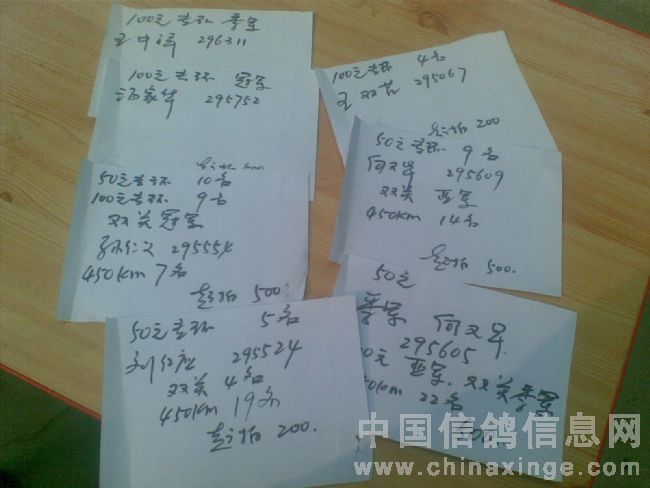 100元专环 季军
296311
100元专环 冠军
汤家华 295752
50元专环 10名
100元专环 9名
双关冠军
孙仁义 29555
450km 7名
起拍 500
50元专环 5名
刘仁应 295524
双关 4名
450km 19名
起拍 200.
100元专环 4名
王双 295067
起拍 200
50元专环 9名
何文军 295609
双关 亚军
450km 14名
起拍 500.
50元
季军 何文军
295605
0元 亚军. 双关季军
0km 22名
中国信鸽信息网
www.chinaxinge.com